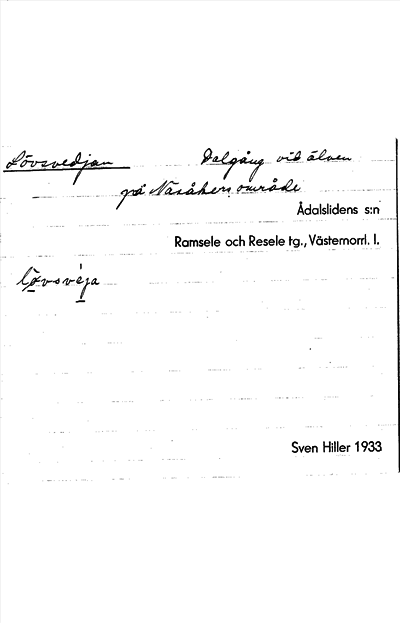 Lövsvedjan Dalgång vid älven
på Näsåkers område
Ådalslidens s:n
Ramsele och Resele tg., Västernorrl. l.
Lövsve̍ja
Sven Hiller 1933